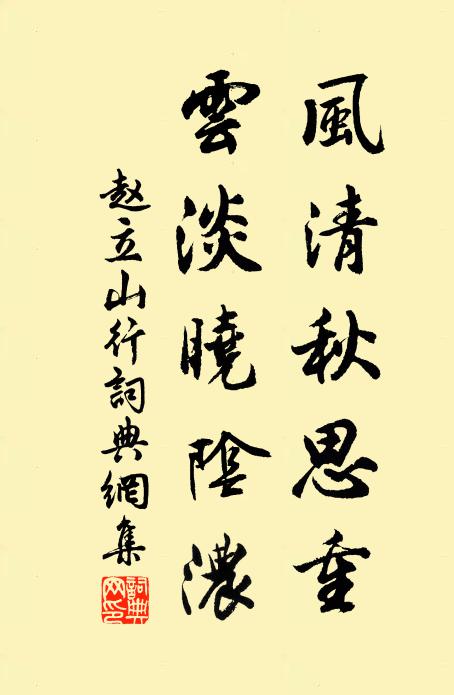 風清秋思重
雲淡曉陰濃
赵立山行詞典網集
詞典網印